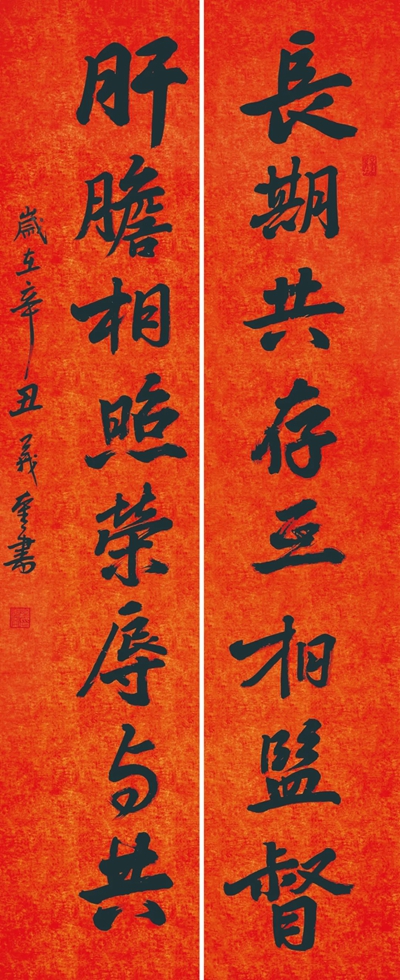 長期共存互相監督
肝膽相照榮辱与共
歲在辛丑義重書